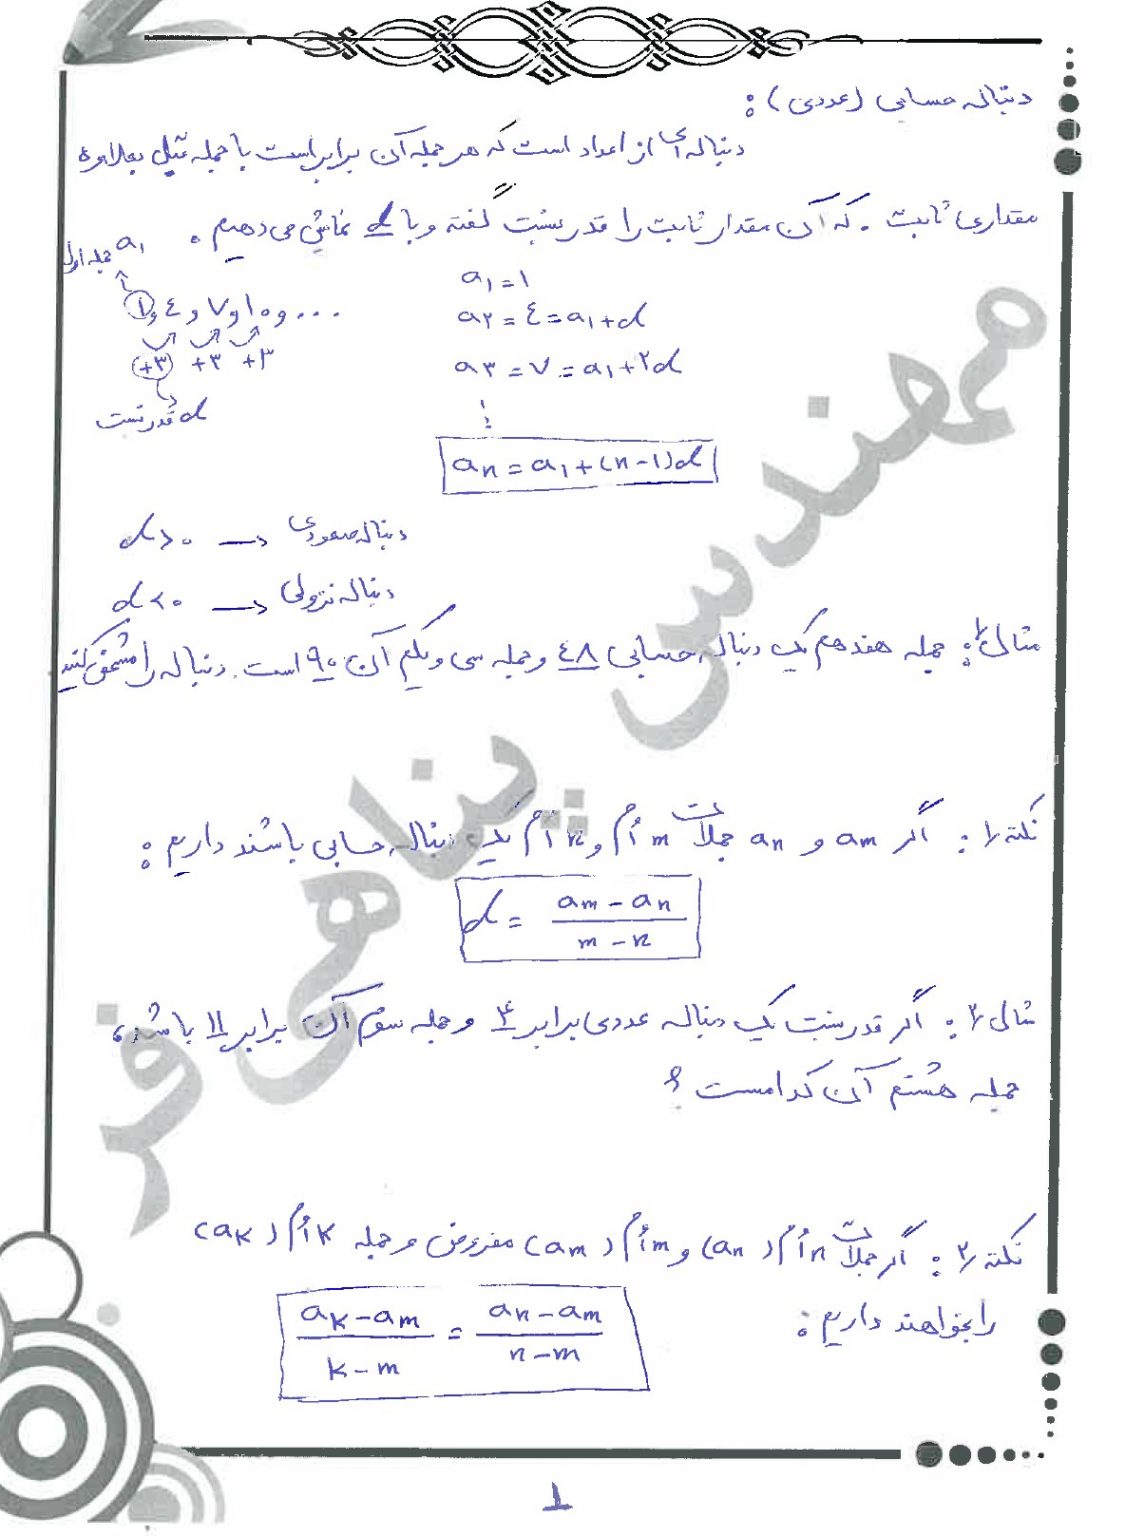 دنباله حسابی (عددی) :
دنباله ای از اعداد است که هر جمله آن برابر است با جمله قبل بعلاوه
مقداری ثابت . که آن مقدار ثابت را قدرنسبت گفته و با d نمایش می دهیم .
a۱ جمله اول
۱ و ٤ و ۷ و ۱۰ و ...
+۳ +۳ +۳
d قدرنسبت
a۱ = ۱
a۲ = ٤ = a۱ + d
a۳ = ۷ = a۱ + ۲d
⋮
an = a۱ + (n-1)d
d > ۰ → دنباله صعودی
d < ۰ → دنباله نزولی
مثال ۱ : جمله هفدهم یک دنباله حسابی ٤۸ و جمله سی و یکم آن ۹۰ است. دنباله را مشخص کنید
نکته ۱ : اگر am و an جملات m اُم و n اُم یک دنباله حسابی باشند داریم :
d = (am - an) / (m - n)
مثال ۲ : اگر قدرنسبت یک دنباله عددی برابر ۴ و جمله سوم آن برابر ۱۱ باشد،
جمله هشتم آن کدامست ؟
نکته ۲ : اگر جملات n اُم (an) و m اُم (am) مفروض و جمله k اُم (ak)
را بخواهند داریم :
(ak - am) / (k - m) = (an - am) / (n - m)
مهندس پناهی فر
1